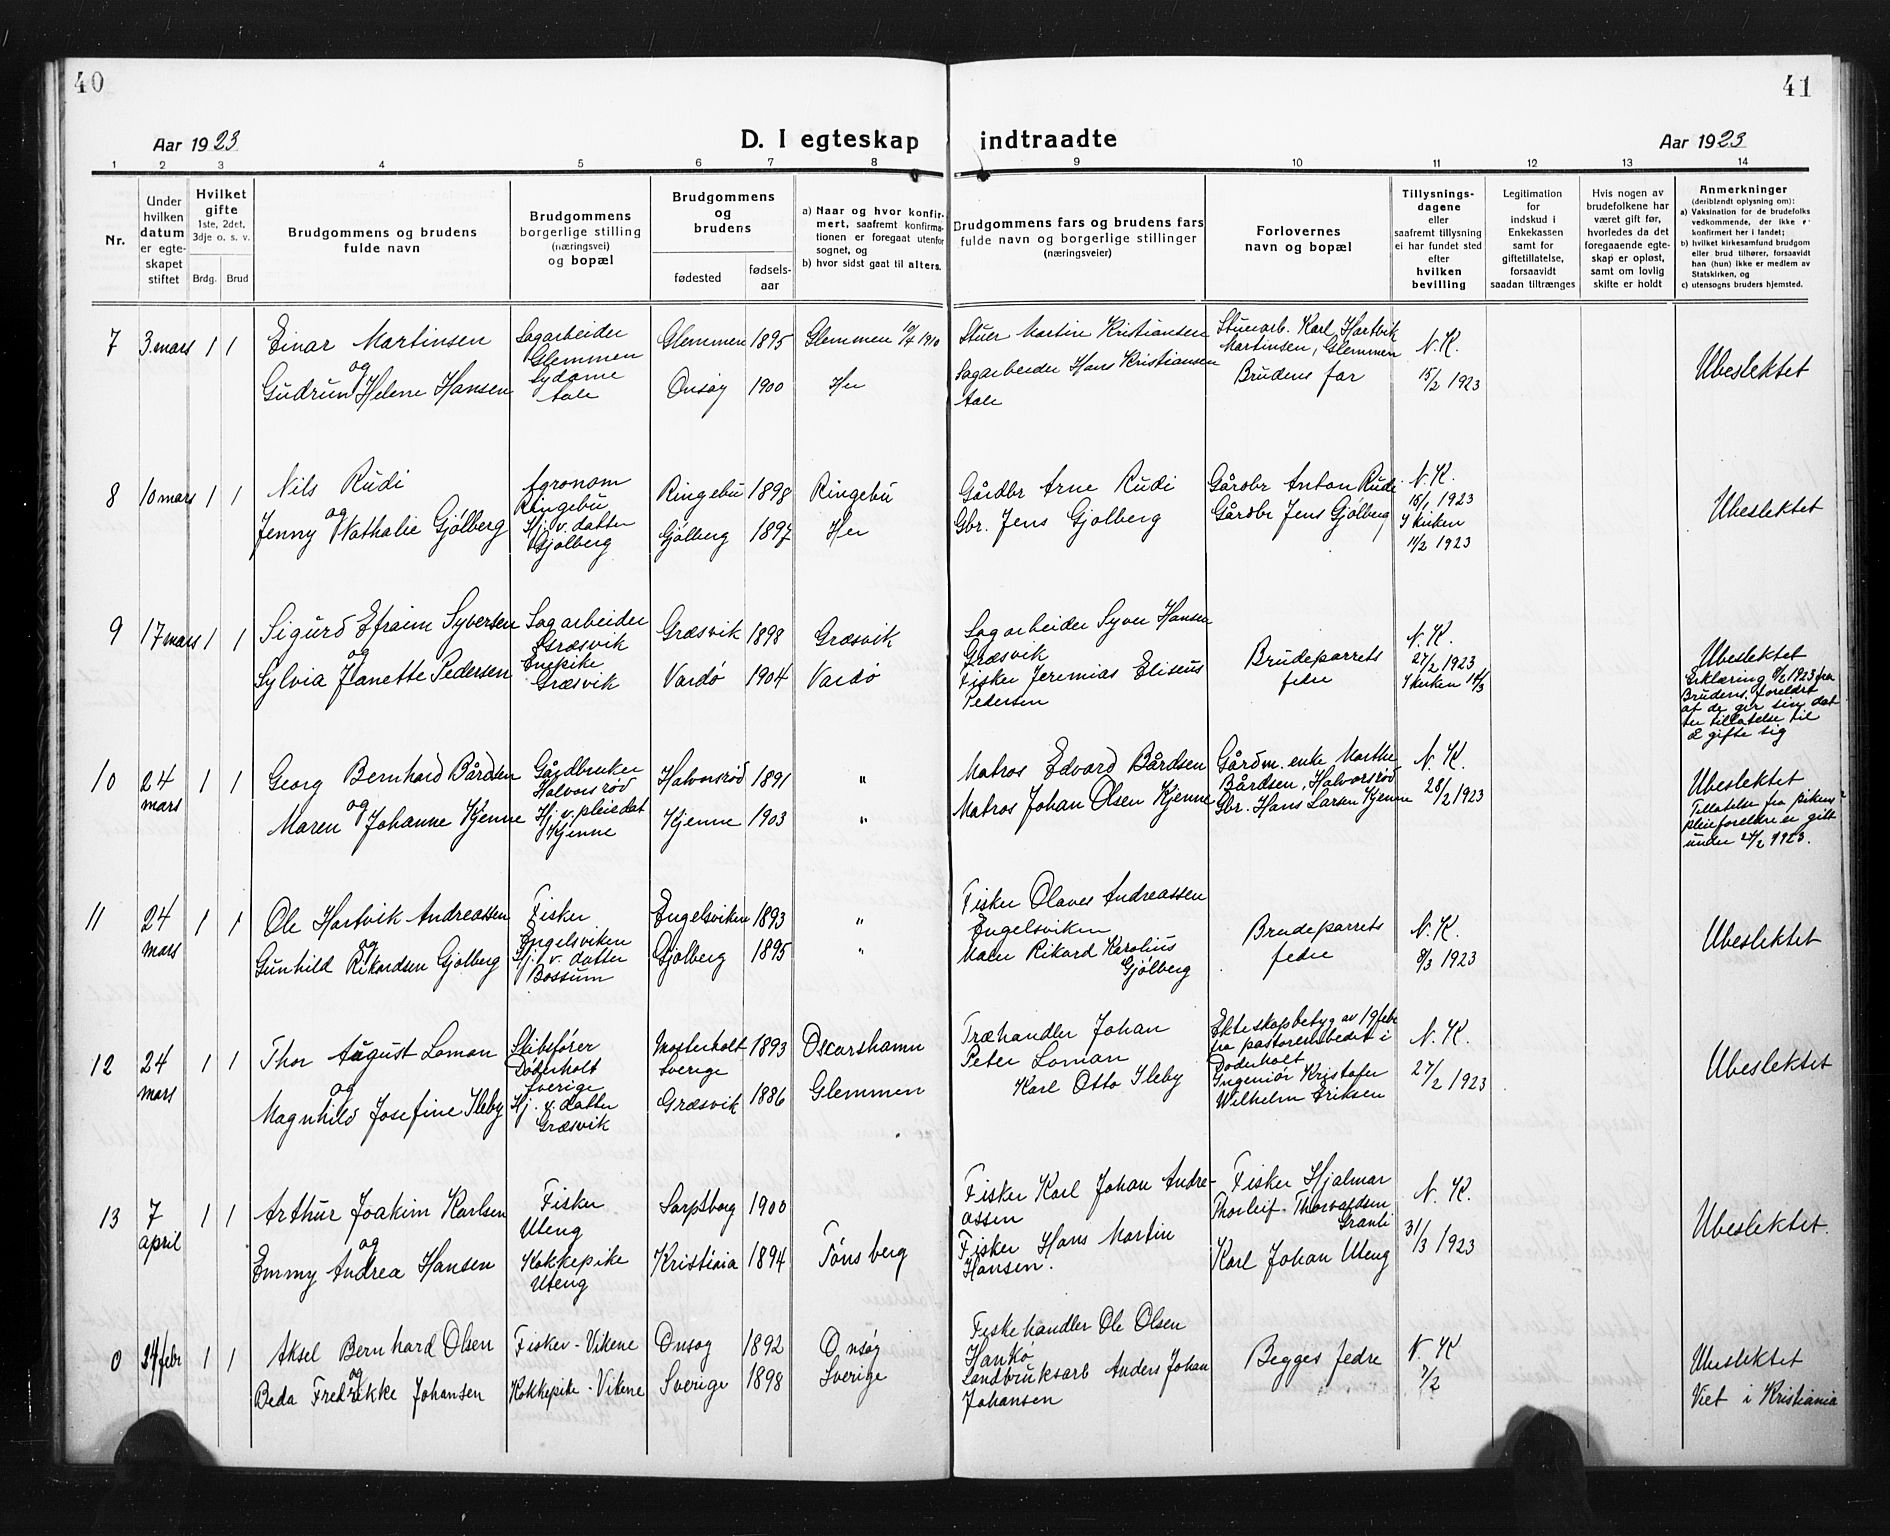 40
41
Aar 1923
D. I egteskap indtraadte
Aar 1923
1 2 3 4 5 6 7 8 9 10 11 12 13 14
Nr.
Under hvilken datum er egte-skapet stiftet
Hvilket gifte 1ste, 2det, 3dje o. s. v.
Brdg. Brud
Brudgommens og brudens fulde navn
Brudgommens borgerlige stilling (næringsvei) og bopæl
Brudgommens og brudens
fødested
fødsels-aar
a) Naar og hvor konfir-mert, saafremt konfirma-tionen er foregaat utenfor sognet, og
b) hvor sidst gaat til alters.
Brudgommens fars og brudens fars fulde navn og borgerlige stillinger (næringsveier)
Forlovernes navn og bopæl
Tillysnings-dagene eller saafremt tillysning ei har fundet sted efter hvilken bevilling
Legitimation for indskud i Enkekassen samt for giftetillatelse, forsaavidt saadan tiltrænges
Hvis nogen av brudefolkene har været gift før, hvorledes da det foregaaende egte-skap er opløst, samt om lovlig skifte er holdt
Anmerkninger (deriblandt oplysning om):
a) Vaksination for de brudefolks vedkommende, der ikke er konfirmert her i landet;
b) hvilket kirkesamfund brudgom eller brud tilhører, forsaavidt han (hun) ikke er medlem av Statskirken, og
c) utensogns bruders hjemsted.
7 3 mars 1 1 Einar Martinsen
og
Gudrun Helene Hansen
Sagarbeider
Glemmen
Sydame
Aale
Glemmen 1895 Glemmen 10/4 1910
Onsøy 1900 Her
Stuer Martin Kristiansen
Sagarbeider Hans Kristiansen
Aale
Stuearb. Karl Hartvik
Martinsen, Glemmen
Brudens far
N. K.
15/2 1923
Ubeslektet
8 10 mars 1 1 Nils Rudi
og
Jenny Nathalie Gjølberg
Agronom
Ringebu
Hj. v. datter
Gjølberg
Ringebu 1898 Ringebu
Gjølberg 1897 Her
Gårdbr Arne Rudi
Gbr. Jens Gjølberg
Gårdbr Anton Rudi
Gårdbr Jens Gjølberg
N. K.
15/1 1923
I kirken
11/2 1923
Ubeslektet
9 17 mars 1 1 Sigurd Efraim Syversen
og
Sylvia Jeanette Pedersen
Sagarbeider
Græsvik
Enepike
Græsvik
Græsvik 1898 Græsvik
Vardø 1904 Vardø
Sagarbeider Syver Hansen
Græsvik
Fisker Jeremias Eliseus
Pedersen
Brudeparrets
fedre
N. K.
27/2 1923
I kirken 14/3
Ubeslektet
Erklæring 8/2 1923 fra
Brudens foreldre
at de gir sin dat
ter tillatelse til
å gifte sig
10 24 mars 1 1 Georg Bernhard Bårdsen
og
Maren Johanne Kjenne
Gårdbruker
Halvorsrød
Hj. v. pleiedat
Kjenne
Halvorsrød 1891 "
Kjenne 1903 "
Matros Edvard Bårdsen
Matros Johan Olsen Kjenne
Gårdm. enke Marthe
Bårdsen, Halvorsrød
Gbr. Hans Larsen Kjenne
N. K.
28/2 1923
Ubeslektet
Tillatelse fra pikens
pleieforeldre er gitt
under 27/2 1923.
11 24 mars 1 1 Ole Hartvik Andreassen
og
Gunhild Rikardsen Gjølberg
Fisker
Engelsviken
Hj. v. datter
Bossum
Engelsviken 1893 "
Gjølberg 1895 "
Fisker Olaves Andreassen
Engelsviken
Maler Rikard Karolius
Gjølberg
Brudeparrets
fedre
N. K.
8/3 1923
Ubeslektet
12 24 mars 1 1 Thor August Loman
og
Magnhild Josefine Ileby
Skibsfører
Døderholt
Sverige
Hj. v. datter
Græsvik
Mosterholt 1893 Oscarshamn
Sverige
Græsvik 1886 Glemmen
Træhandler Johan
Peter Loman
Karl Otto Ileby
Ekteskapsbetyg av 19 febr
fra pastorembedet i
Døderholt
Ingeniør Kristofer
Wilhelm Eriksen
N. K.
27/2 1923
Ubeslektet
13 7 april 1 1 Arthur Joakim Karlsen
og
Emmy Andrea Hansen
Fisker
Uteng
Kokkepike
Uteng
Sarpsborg 1900
Kristiania 1894 Tønsberg
Fisker Karl Johan Andre-
assen
Fisker Hans Martin
Hansen.
Fisker Hjalmar
Thorleif Thorvaldsen
Granli
Karl Johan Uteng
N. K.
31/3 1923
Ubeslektet.
0 24 febr 1 1 Aksel Bernhard Olsen
og
Beda Fredrikke Johansen
Fisker - Vikene
Kokkepike - Vikene
Onsøy 1892 Onsøy
Sverige 1898 Sverige
Fiskehandler Ole Olsen
Hankø
Landbruksarb Anders Johan
Johansen
Begges fedre
N. K
7/2
Ubeslektet
Viet i Kristiania